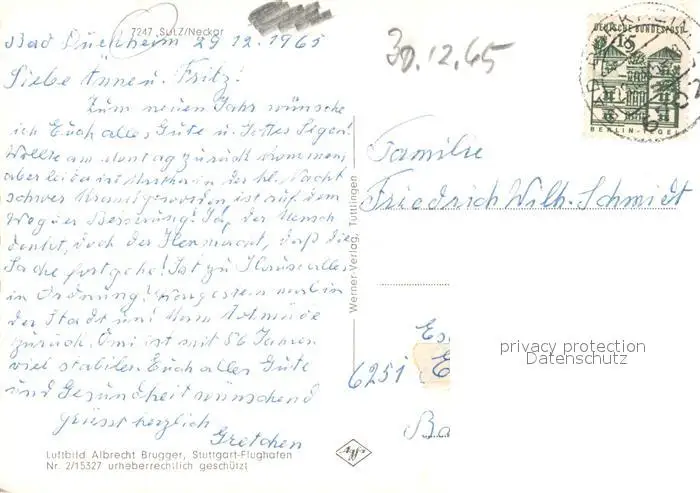 7247 Sulz/Neckar
Bad Dürkheim 29 12. 1965
Liebe Änne u. Fritz!
Zum neuen Jahr wünsche
ich Euch alles Gute u. Gottes Segen!
Wollte am Montag zurück kommen,
aber leider ist Marthain der hl. Nacht
schwer krank geworden, ist auf dem
Weg der Besserung! Ja, der Mensch
denkt, doch der Herr macht, daß die
Sache fortgehe! Ist zu Hause alles
in Ordnung? gestern mal in
der Stadt
zurück. Omi ist mit 86 Jahren
viel stabiler. Euch alles Gute
und Gesundheit wünschend
grüsst herzlich
Gretchen
Luftbild Albrecht Brugger, Stuttgart-Flughafen
Nr. 2/15327 urheberrechtlich geschützt
Werner-Verlag, Tuttlingen
30.12.65
DEUTSCHE BUNDESPOST
15
BERLIN-TEGEL
Familie
Friedrich Wilh. Schmidt
Es
6251 E
Ba
privacy protection
Datenschutz